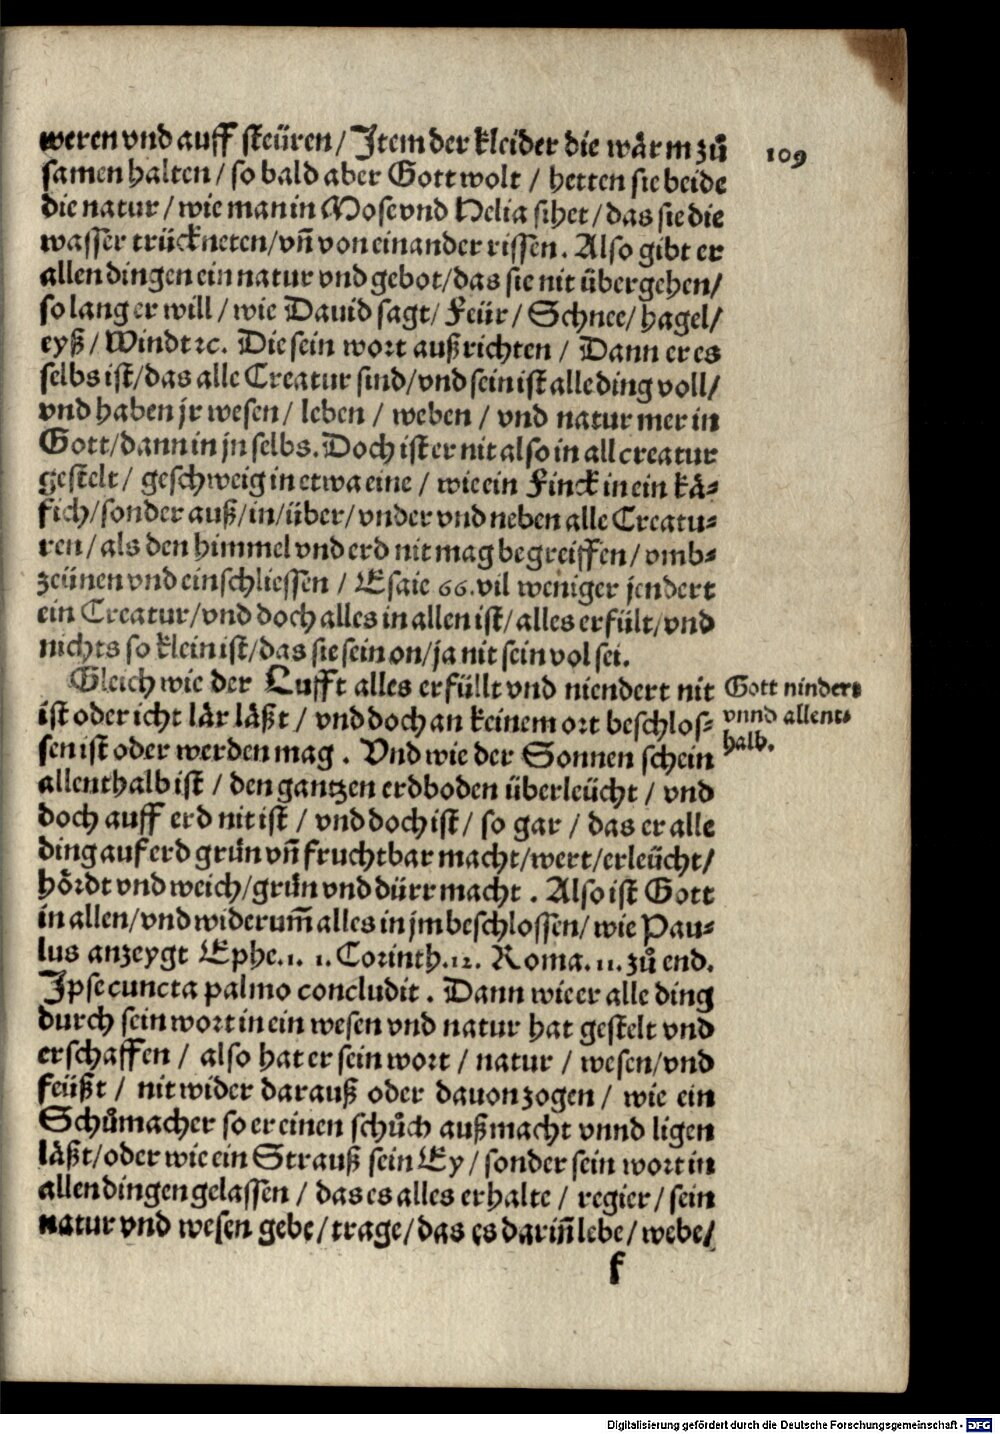 109
weren vnd auff steüren / Item der kleider die wårm zů
samen halten / so bald aber Gott wolt / hetten sie beide
die natur / wie man in Mose vnd Helia sihet / das sie die
wasser trückneten / vñ von einander rissen. Also gibt er
allen dingen ein natur vnd gebot / das sie nit übergehen /
so lang er will / wie Dauid sagt / Feür / Schnee / hagel /
eyß / Windt ꝛc. Die sein wort außrichten / Dann er es
selbs ist / das alle Creatur sind / vnd sein ist alle ding voll /
vnd haben jr wesen / leben / weben / vnd natur mer in
Gott / dann in jn selbs. Doch ist er nit also in all creatur
gestelt / geschweig in etwa eine / wie ein Finck in ein kå⸗
fich / sonder auß / in / über / vnder vnd neben alle Creatu⸗
ren / als den himmel vnd erd nit mag begreiffen / vmb⸗
zeünen vnd einschliessen / Esaie 66. vil weniger jendert
ein Creatur / vnd doch alles in allen ist / alles erfült / vnd
nichts so klein ist / das sie sein on / ja nit sein vol sei.
Gleich wie der Lufft alles erfüllt vnd niendert nit
ist oder icht lår låßt / vnd doch an keinem ort beschlos⸗
sen ist oder werden mag. Vnd wie der Sonnen schein
allenthalb ist / den gantzen erdboden überleücht / vnd
doch auff erd nit ist / vnd doch ist / so gar / das er alle
ding auf erd grün vñ fruchtbar macht / wert / erleücht /
hördt vnd weich / grün vnd dürr macht. Also ist Gott
in allen / vnd widerum̃ alles in jm beschlossen / wie Pau⸗
lus anzeygt Ephe. 1. 1. Corinth. 12. Roma. 11. zů end.
Ipse cuncta palmo concludit. Dann wie er alle ding
durch sein wort in ein wesen vnd natur hat gestelt vnd
erschaffen / also hat er sein wort / natur / wesen / vnd
feüßt / nit wider darauß oder dauon zogen / wie ein
Schůmacher so er einen schůch außmacht vnnd ligen
låßt / oder wie ein Strauß sein Ey / sonder sein wort in
allen dingen gelassen / das es alles erhalte / regier / sein
natur vnd wesen gebe / trage / das es dariñ lebe / webe /
f
Gott ninders
vnnd allent⸗
halb.
Digitalisierung gefördert durch die Deutsche Forschungsgemeinschaft - DFG